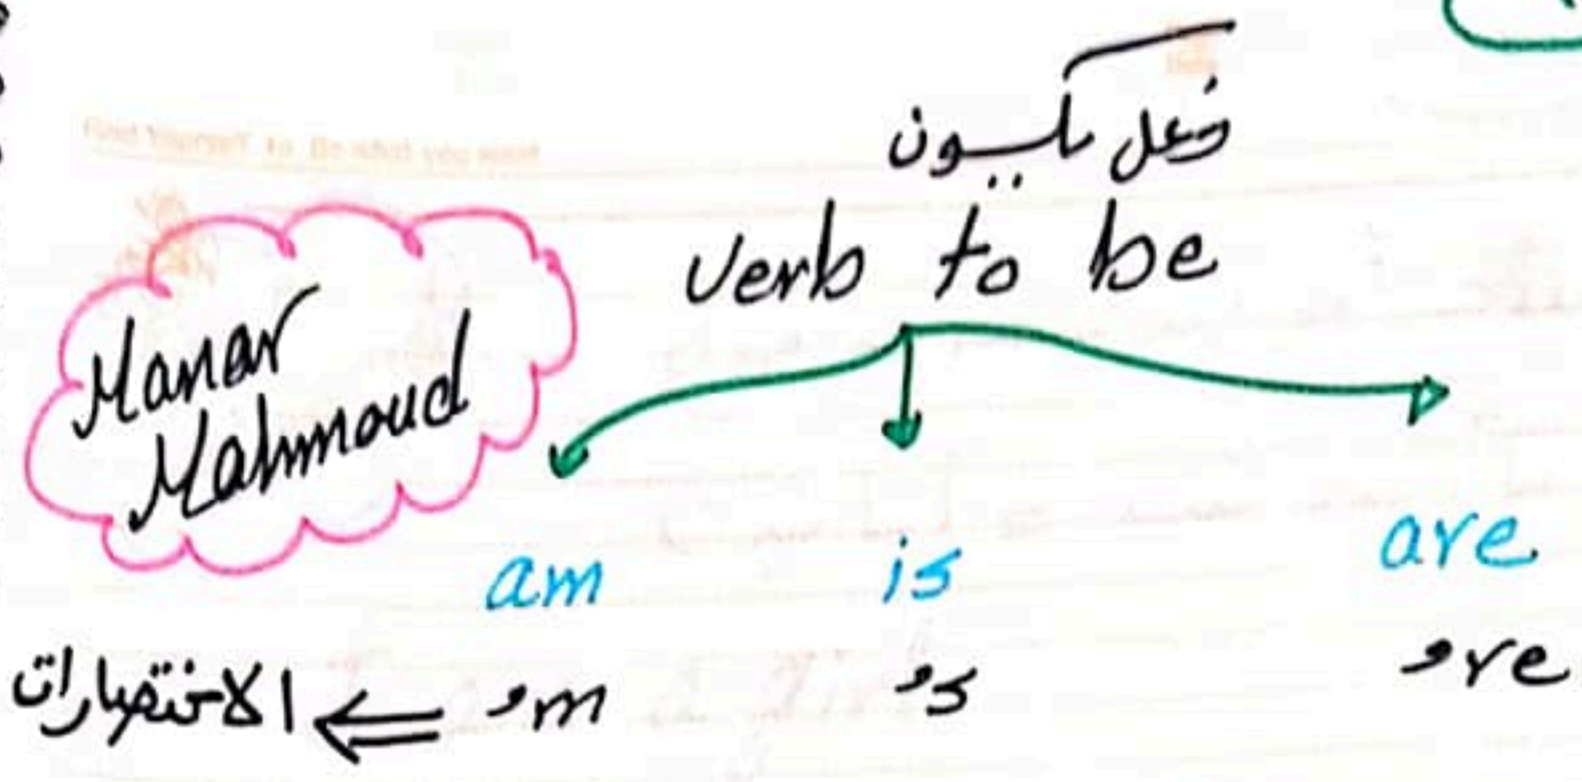 فعل يكون
verb to be
Manar
Mahmoud
am is are
الاختصارات ⇐ 'm 's 're